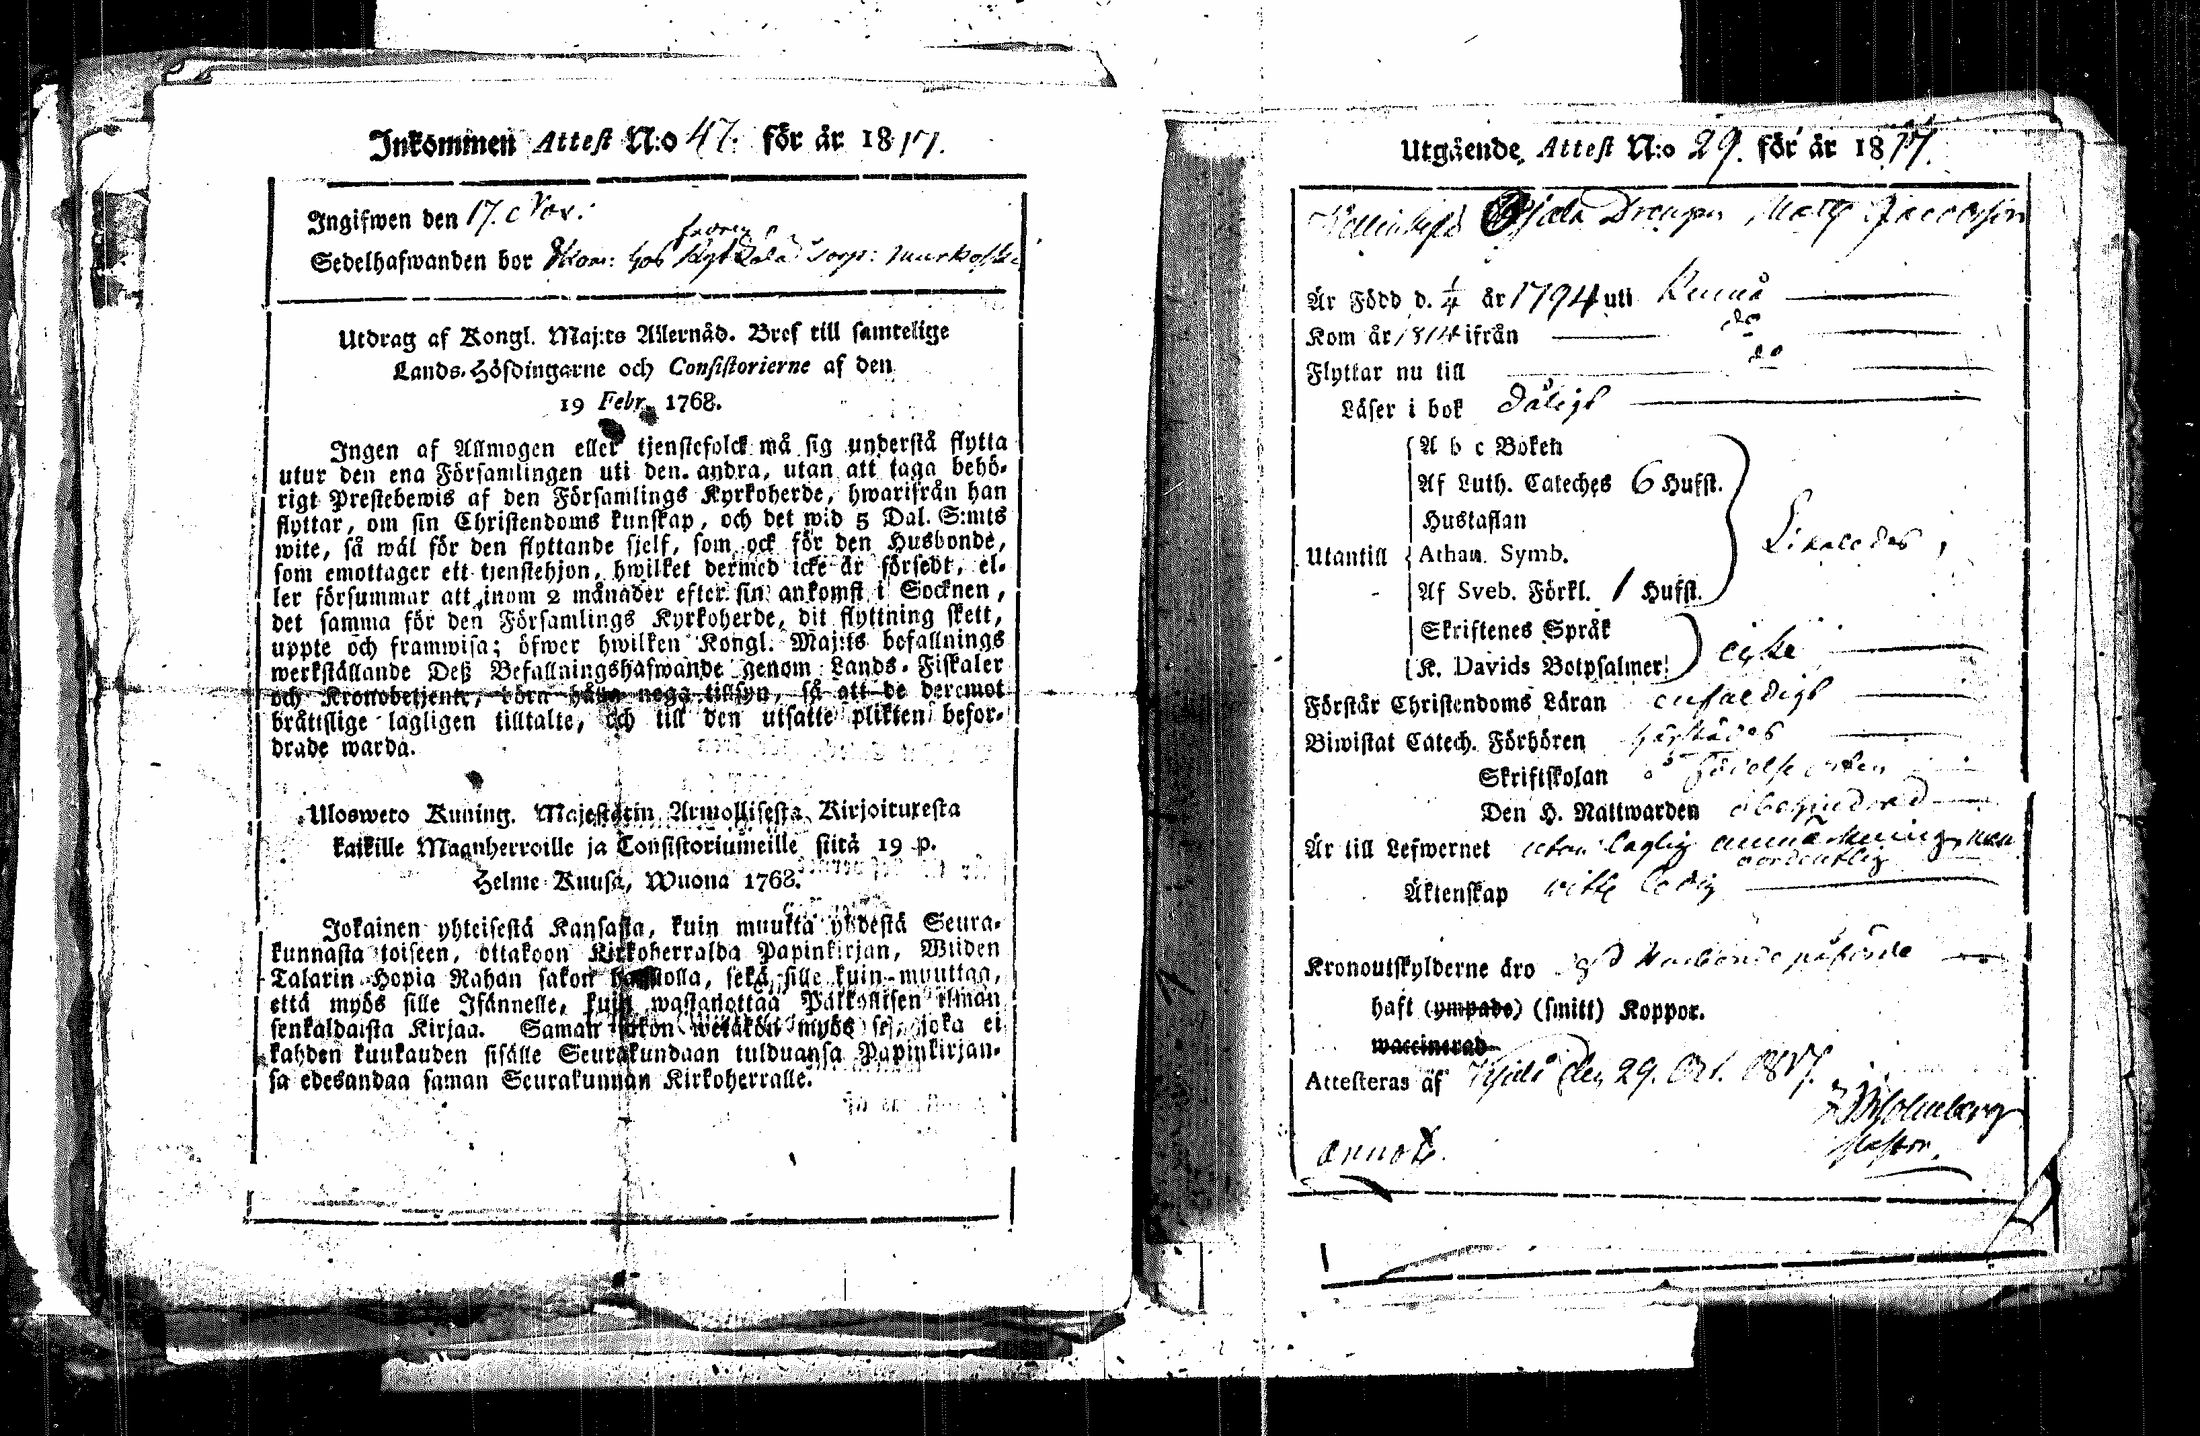 Inkommen Attest N:o 47. för år 1817.
Ingifwen den 17. Nov:
Sedelhafwanden bor hos torp:
Utdrag af Kongl. Maj:ts Allernåd. Bref till samtelige
Lands-Höfdingarne och Consistorierne af den
19 Febr. 1768.
Ingen af Allmogen eller tjenstefolck må sig understå flytta
utur den ena Församlingen uti den andra, utan att taga behö-
rigt Prestebewis af den Församlings Kyrkoherde, hwarifrån han
flyttar, om sin Christendoms kunskap, och det wid 5 Dal. S:mts
wite, så wäl för den flyttande sjelf, som ock för den Husbonde,
som emottager ett tjenstehjon, hwilket dermed icke är försedt, el-
ler försummar att inom 2 månader efter sin ankomst i Socknen,
det samma för den Församlings Kyrkoherde, dit flyttning skett,
uppte och framwisa; öfwer hwilken Kongl. Maj:ts befallnings
werkställande Deß Befallningshafwande genom Lands-Fiskaler
och Kronobetjente, böra hålla noga tillsyn, så att de deremot
bråttslige lagligen tilltalte, och till den utsatte plikten befor-
drade warda.
Ulosweto Kuning. Majestätin Armollisesta Kirjoituxesta
kaikille Maanherroille ja Consistoriumeille siitä 19 p.
Helme-Kuusa, Wuona 1768.
Jokainen yhteisestä Kansasta, kuin muutta yhdestä Seura-
kunnasta toiseen, ottakoon Kirkoherralda Papinkirjan, Wiiden
Talarin Hopia Rahan sakon sekä sille kuin muuttaa,
että myös sille Isännelle, kuin wastanottaa Palkollisen ilman
senkaldaista Kirjaa. Saman sakon wetäkön myös se, joka ei
kahden kuukauden sisälle Seurakundaan tulduansa Papinkirjan-
sa edesandaa saman Seurakunnan Kirkoherralle.
Utgående Attest N:o 29. för år 1817.
Drengen Matts Jacobsson
Är Född d. 1/4 år 1794 uti
Kom år 1814 ifrån do
Flyttar nu till do
Läser i bok dåligt
A b c Boken
Af Luth. Cateches 6 Hufst.
Hustaflan
Utantill Athan. Symb. Likaledes
Af Sveb. Förkl. 1 Hufst.
Skriftenes Språk
K. Davids Botpsalmer icke
Förstår Christendoms Läran enfaldigt
Biwistat Catech. Förhören härstädes
Skriftskolan å Födelse orten
Den H. Nattwarden obehindrad
Är till Lefwernet utan laglig anmärkning, men
oordentlig
Äktenskap ledig
Kronoutskylderne äro Husbonde påförde
haft (ympade) (smitt) Koppor.
waccinerad
Attesteras af den 29. Oct. 1817.
Pastor.
annot.